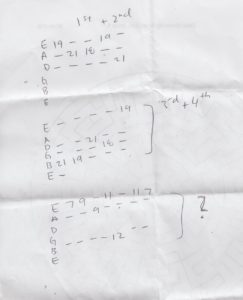 1st + 2nd
E 19 - - 19 -
A - 21 18 - -
D - - - - 21
G
B
E
E - - - - 19
A - - 21 - -
D - - - -
G - - - - -
B 21 19 - 18 - -
E -
E 7 9 - 11 - 11 7
A - - 9 - - - -
D
G - - - - 12
B
E
?